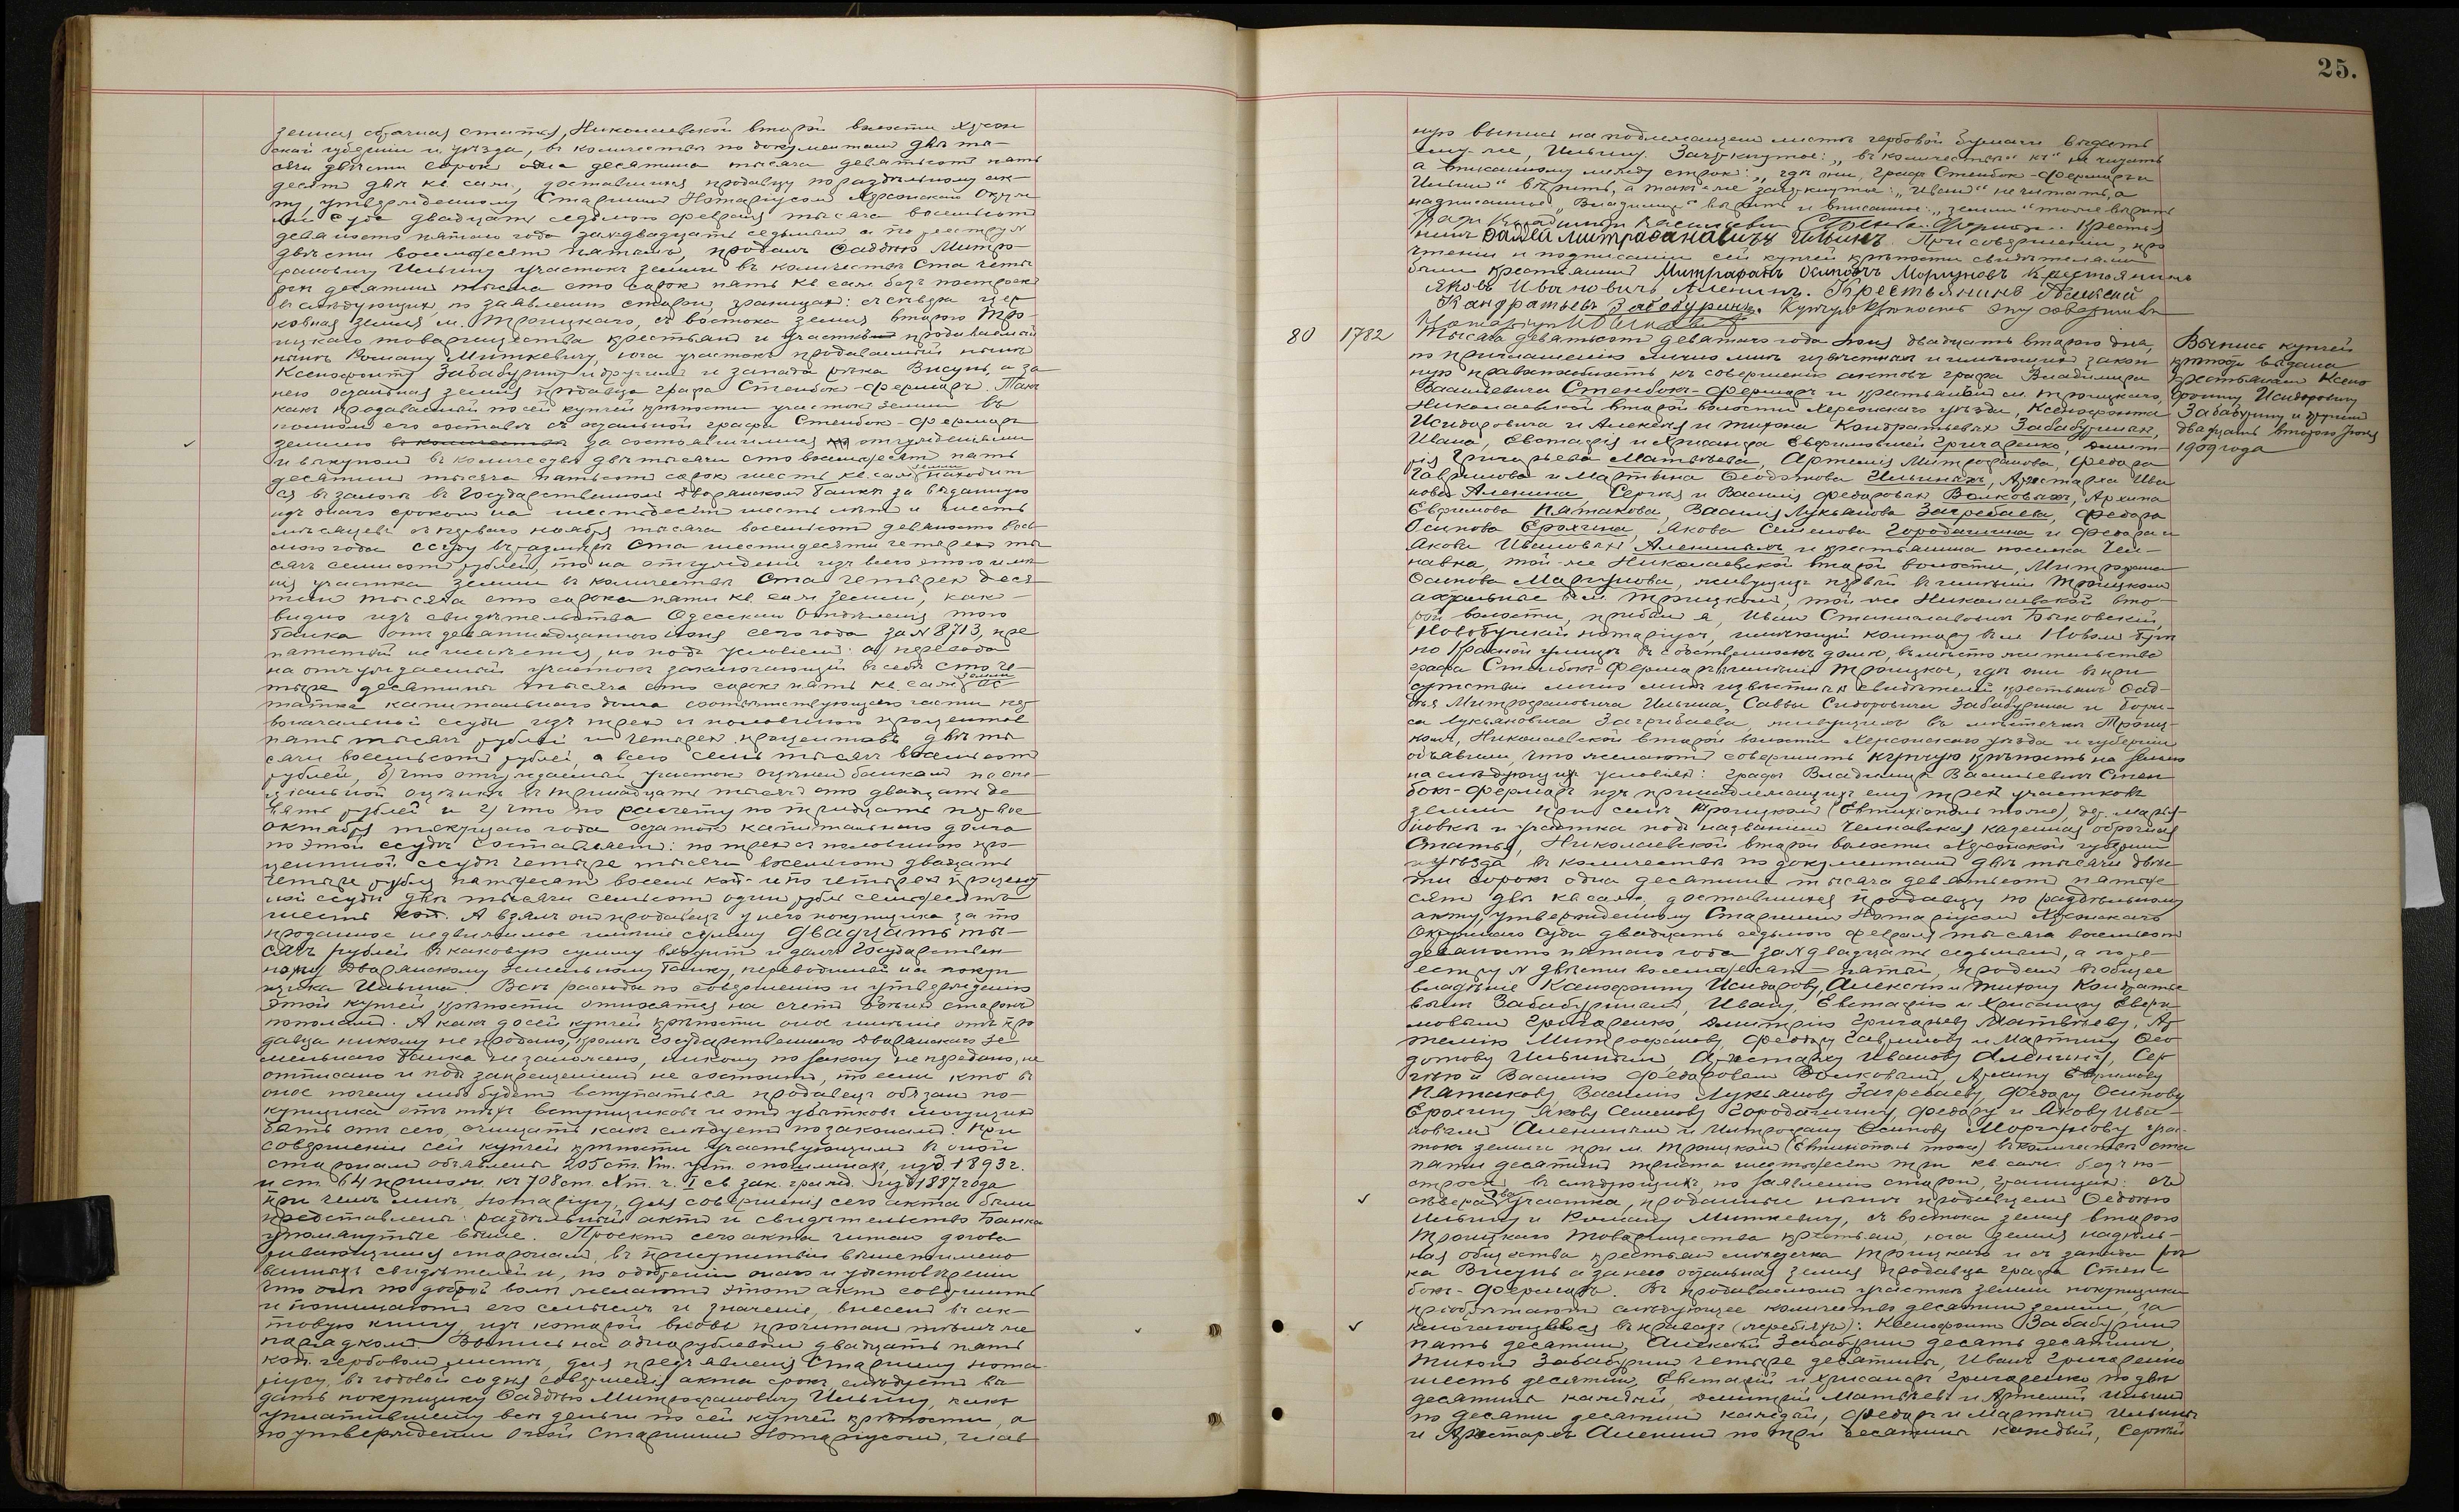 земная оброчная статья, Николаевской второй волости Херсон
ской губернии и уѣзда, въ количествѣ по документамъ двѣ ты-
сячи двѣсти сорокъ одна десятина тысяча девятьсотъ пять
десятъ двѣ кв. саж., доставшихся продавцу по раздѣльному ак-
ту, утвержденному Старшимъ Нотаріусомъ Херсонскаго Окруж
наго Суда двадцать седьмого февраля тысяча восемьсотъ
девяносто пятаго года за № двадцать седьмымъ а по реестру №
двѣсти восемьдесятъ пятымъ, продалъ Фаддѣю Митро-
фановичу Ильину участокъ земли въ количествѣ Ста четы
рехъ десятинъ тысяча сто сорокъ пять кв. саж. безъ построекъ
въ слѣдующихъ, по заявленію сторонъ, границахъ: съ сѣвера цер
ковная земля м. Троицкаго, съ востока земля второго Тро-
ицкаго товарищества крестьянъ и участокъ продаваемый
нынѣ Роману Миткевичу, юга участокъ продаваемый нынѣ
Ксенофонту Забабурину и другимъ и запада рѣка Висунь, а за
нею остальная земля продавца графа Стенбокъ-Ферморъ. Такъ
какъ продаваемый по сей купчей крѣпости участокъ земли въ
полномъ его составѣ съ остальной графа Стенбокъ-Ферморъ
землею въ количествѣ за состоявшимися отчужденіями
и выкупомъ въ количествѣ двѣ тысячи сто восемьдесятъ пять
десятинъ тысяча пятьсотъ сорокъ шесть кв. саж. земли находит
ся въ залогѣ въ Государственномъ Дворянскомъ Банкѣ за выданную
изъ онаго срокомъ на шестьдесятъ шесть лѣтъ и шесть
мѣсяцевъ съ перваго ноября тысяча восемьсотъ девяносто вось
мого года ссуду въ размѣрѣ Ста шестидесяти четырехъ ты
сячъ семисотъ рублей, то на отчужденіе изъ всего этого имѣ
нія участка земли въ количествѣ Ста четырехъ деся
тинъ тысяча сто сорока пяти кв. саж. земли, какъ
видно изъ свидѣтельства Одесскаго Отдѣленія того
Банка отъ девятнадцатаго Іюня сего года за № 8713, пре
пятствій не имѣется, но подъ условіемъ: а) перевода
на отчуждаемый участокъ заключающій въ себѣ сто че-
тыре десятины тысяча сто сорокъ пять кв. саж. земли ос
татка капитальнаго долга соотвѣтствующаго части пер
воначальной ссуды изъ трехъ съ половиною процентовъ
пять тысячъ рублей и четырехъ процентовъ двѣ ты
сячи восемьсотъ рублей, а всего семь тысячъ восемьсотъ
рублей, б) что отчуждаемый участокъ оцѣненъ банкомъ по спе-
ціальной оцѣнкѣ въ тринадцать тысячъ сто двадцать де
вять рублей и 2) что по расчету по тридцать первое
октября текущаго года остатокъ капитальнаго долга
по этой ссудѣ составляетъ: по трехъ съ половиною про-
центной ссудѣ четыре тысячи восемьсотъ двадцать
четыре рубля пятьдесятъ восемь коп. и по четырехъ процент
ной ссудѣ двѣ тысячи семьсотъ одинъ рубль семьдесятъ
шесть коп. А взялъ онъ продавецъ у него покупщика за то
проданное недвижимое имѣніе сумму двадцать ты-
сячъ рублей въ каковую сумму входитъ и долгъ Государствен
ному Дворянскому Земельному Банку, переводимый на покуп
щика Ильина. Всѣ расходы по совершенію и утвержденію
этой купчей крѣпости относятся на счетъ обѣихъ сторонъ
пополамъ. А какъ до сей купчей крѣпости оное имѣніе отъ про
давца никому не продано, кромѣ Государственнаго Дворянскаго Зе
мельнаго банка не заложено, никому по закону не передано, не
отписано и подъ запрещеніемъ не состоитъ, то если кто въ
оное почему либо будетъ вступаться продавецъ обязанъ по-
купщика отъ тѣхъ вступщиковъ и отъ убытковъ могущихъ
быть отъ сего, очищать какъ слѣдуетъ по законамъ. При
совершеніи сей купчей крѣпости участвующимъ въ оной
сторонамъ объявлены 205 ст. V т. уст. о пошлинахъ, изд. 1893 г.
и ст. 64 прилож. къ 708 ст. X т. ч. I св. зак. гражд. изд 1887 года
При чемъ мнѣ, нотаріусу, для совершенія сего акта были
представлены: раздѣльный актъ и свидѣтельство Банка
упомянутые выше. Проектъ сего акта читанъ догова
ривающимся сторонамъ, въ присутствіи вышепоимено
ванныхъ свидѣтелей и, по одобреніи онаго и удостовѣреніи
что они по доброй волѣ желаютъ этотъ актъ совершить
и понимаютъ его смыслъ и значеніе, внесенъ въ ак-
товую книгу, изъ которой вновь прочитанъ тѣмъ же
порядкомъ. Выпись на однорублевомъ двадцать пять
коп. гербовомъ листѣ, для предъявленія Старшему нота
ріусу, въ годовой со дня совершенія акта срокъ, слѣдуетъ вы
дать покупщику Фаддѣю Митрофановичу Ильину, какъ
уплатившему всѣ деньги по сей купчей крѣпости, а
по утвержденіи оной Старшимъ Нотаріусомъ, глав
25.
ную выпись на подлежащемъ листѣ гербовой бумаги выдать
ему-же, Ильину. Зачеркнутое: „въ количествѣ" не читать
а вписанному между строкъ: „гдѣ они, Графъ Стенбокъ-Ферморъ и
Ильинъ" вѣрить, а также зачеркнутое: „Иванъ" не читать, а
надписанное „Владимиръ" вѣрить и вписанное: „земли" тоже вѣрить
Графъ Владимиръ Васильевичъ Стенбокъ-Ферморъ. Крестья
нинъ Фадей Митрафанавичъ Ильинъ. При совершеніи, про
чтеніи и подписаніи сей купчей крѣпости свидѣтелями
были Крестьянинъ Митрафанъ Осиповъ Моргуновъ Крестьянинъ
Яковъ Ивановичъ Аленинъ. Крестьянинъ Алексей
Кандратьевъ Забабуринъ. Купчую крѣпость эту совершилъ
80 1782 Тысяча девятьсотъ девятаго года Іюня двадцать второго дня,
по приглашенію лично мнѣ извѣстныхъ и имѣющихъ закон
ную правоспособность къ совершенію актовъ графа Владимира
Васильевича Стенбокъ-Ферморъ и крестьянъ м. Троицкаго,
Николаевской второй волости Херсонскаго уѣзда, Ксенофонта
Исидоровича и Алексѣя и Тихона Кондратьевыхъ Забабуриныхъ,
Ивана, Евстафія и Хрисанфа Ефимовыхъ Григоренко, Дмит-
рія Григорьева Матвѣева, Артемія Митрофанова, Федора
Гаврилова и Мартына Феодотова Ильиныхъ, Аристарха Ива
нова Аленина, Сергѣя и Василія Федоровыхъ Волковыхъ, Архипа
Ефремова Патакова, Василія Лукьянова Загребаева, Федора
Осипова Ерохина, Якова Семенова Городагина и Федора и
Якова Ивановыхъ Алениныхъ и крестьянина поселка Чел-
навка, той-же Николаевской второй волости, Митрофана
Осипова Моргунова, живущихъ первый въ имѣніи Троицкомъ
остальные въ м. Троицкомъ, той же Николаевской вто-
рой волости, прибылъ я, Иванъ Станиславовичъ Быковскій,
Новобугскій нотаріусъ, имѣющій контору въ м. Новомъ Бугѣ
по Красной улицѣ въ собственномъ домѣ, въ мѣсто жительства
графа Стенбокъ-Ферморъ въ имѣніи Троицкое, гдѣ они въ при
сутствіи лично мнѣ извѣстныхъ свидѣтелей крестьянъ Фад-
дѣя Митрофановича Ильина, Саввы Сидоровича Забабурина и Бори-
са Лукьяновича Загрибаева, живущихъ въ мѣстечкѣ Троиц-
комъ, Николаевской второй волости Херсонскаго уѣзда и губерніи
объявили, что желаютъ совершить купчую крѣпость на землю
на слѣдующихъ условіяхъ: графъ Владимиръ Васильевичъ Стен
бокъ-Ферморъ изъ принадлежащихъ ему трехъ участковъ
земли при селѣ Троицкомъ (Евтихіополь тоже), дер. Марья-
новкѣ и участка подъ названіемъ Челнавская казенная оброчная
Статья, Николаевской второй волости Херсонской губерніи
и уѣзда въ количествѣ по документамъ двѣ тысячи двѣс
ти сорокъ одна десятина тысяча девятьсотъ пятьде
сятъ двѣ кв. саж., доставшихся продавцу по раздѣльному
акту, утвержденному Старшимъ Нотаріусомъ Херсонскаго
Окружнаго Суда двадцать седьмого февраля тысяча восемьсотъ
девяносто пятаго года за № двадцать седьмымъ, а по ре-
естру № двѣсти восемьдесятъ пятый, продалъ въ общее
владѣніе Ксенофонту Исидорову, Алексѣю и Тихону Кондратье
вымъ Забабуринымъ, Ивану, Евстафію и Хрисанфу Ефи
мовымъ Григоренко, Дмитрію Григорьеву Матвѣеву, Ар
темію Митрофанову, Федору Гаврилову и Мартыну Фео
дотову Ильинымъ, Аристарху Иванову Аленину, Сер
гѣю и Василію Федоровымъ Волковымъ, Архипу Ефремову
Патакову, Василію Лукьянову Загребаеву, Федору Осипову
Ерохину, Якову Семенову Городагину, Федору и Якову Ива-
новымъ Аленинымъ и Митрофану Осипову Моргунову учас-
токъ земли при м. Троицкомъ (Евтихіополь тожъ) въ количествѣ ста
пяти десятинъ триста шестьдесятъ три кв. саж. безъ по-
строекъ въ слѣдующихъ, по заявленію сторонъ, границахъ: съ
сѣвера два участка, проданные нынѣ продавцемъ Фаддѣю
Ильину и Роману Миткевичу, съ востока земля второго
Троицкаго товарищества крестьянъ, юга земля надѣль-
ная общества крестьянъ мѣстечка Троицкаго и съ запада рѣ
ка Висунь а за нею остальная земля продавца графа Стен-
бокъ-Ферморъ. Въ продаваемомъ участкѣ земли покупщики
пріобрѣтаютъ слѣдующее количество десятинъ земли, за
ключающееся въ паяхъ (жеребьяхъ): Ксенофонтъ Забабуринъ
пять десятинъ, Алексѣй Забабуринъ десять десятинъ,
Тихонъ Забабуринъ четыре десятины, Иванъ Григоренко
шесть десятинъ, Евстафій и Хрисанфъ Григоренко по двѣ
десятины каждый, Дмитрій Матвѣевъ и Артемій Ильинъ
по десяти десятинъ каждый, Федоръ и Мартынъ Ильины
и Аристархъ Аленинъ по три десятины каждый, Сергѣй
Выпись купчей
крѣпости выдана
крестьянамъ Ксено
фонту Исидоровичу
Забабурину и другимъ
двадцать второго Іюня
1909 года